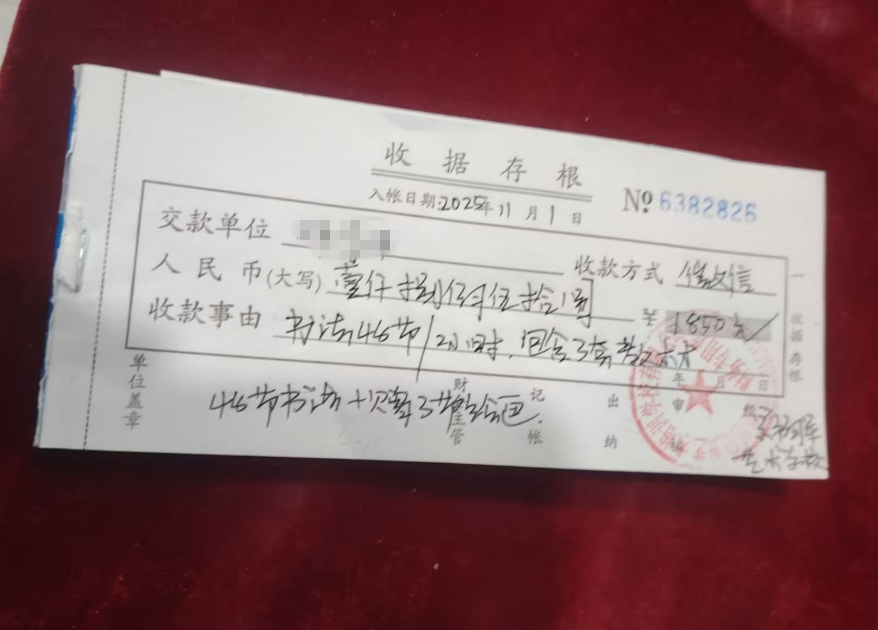 收据存根
入帐日期:2025年11月1日
№ 6382826
交款单位
收款方式 微信
人民币(大写) 壹仟捌佰伍拾
¥ 1850元
收款事由 书法46节/2小时,包含3套教
年 月 日
46节书法+贝赠3节绘画
单位盖章
财
主管
记
帐
出
纳
审
经
艺术学校
一 收据存根